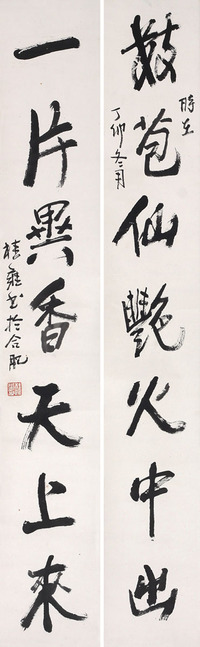 数苞仙艳火中出
時在
丁卯冬月
一片異香天上來
書於合肥